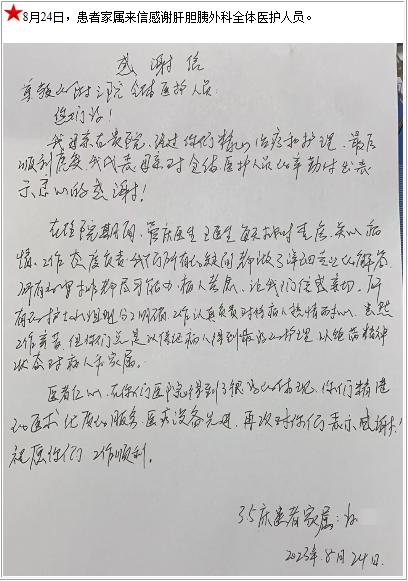 8月24日，患者家属来信感谢肝胆胰外科全体医护人员。
感谢信
尊敬的附三院全体医护人员：
您们好！
我母亲在贵院，通过你们精心治疗和护理，最后
顺利康复，我代表母亲对全体医护人员的辛勤付出表
示衷心的感谢！
在住院期间，管床医生王医生每天按时查房，关心病
情，工作态度负责，我们所有的疑问都做了详细的解答，
所有的都尽可能为病人考虑，让我们倍感亲切。所
有的护士工作认真负责对待病人热情耐心，虽然
工作辛苦，但你们总是以保证病人得到最好的护理，以饱满精神
状态对病人和家属。
医者仁心，在你们医院得到了很好的体现，你们精湛
的医术，优质的服务，医疗设备先进，再次对你们表示感谢！
祝愿你们工作顺利。
35床患者家属：
2023年8月24日.